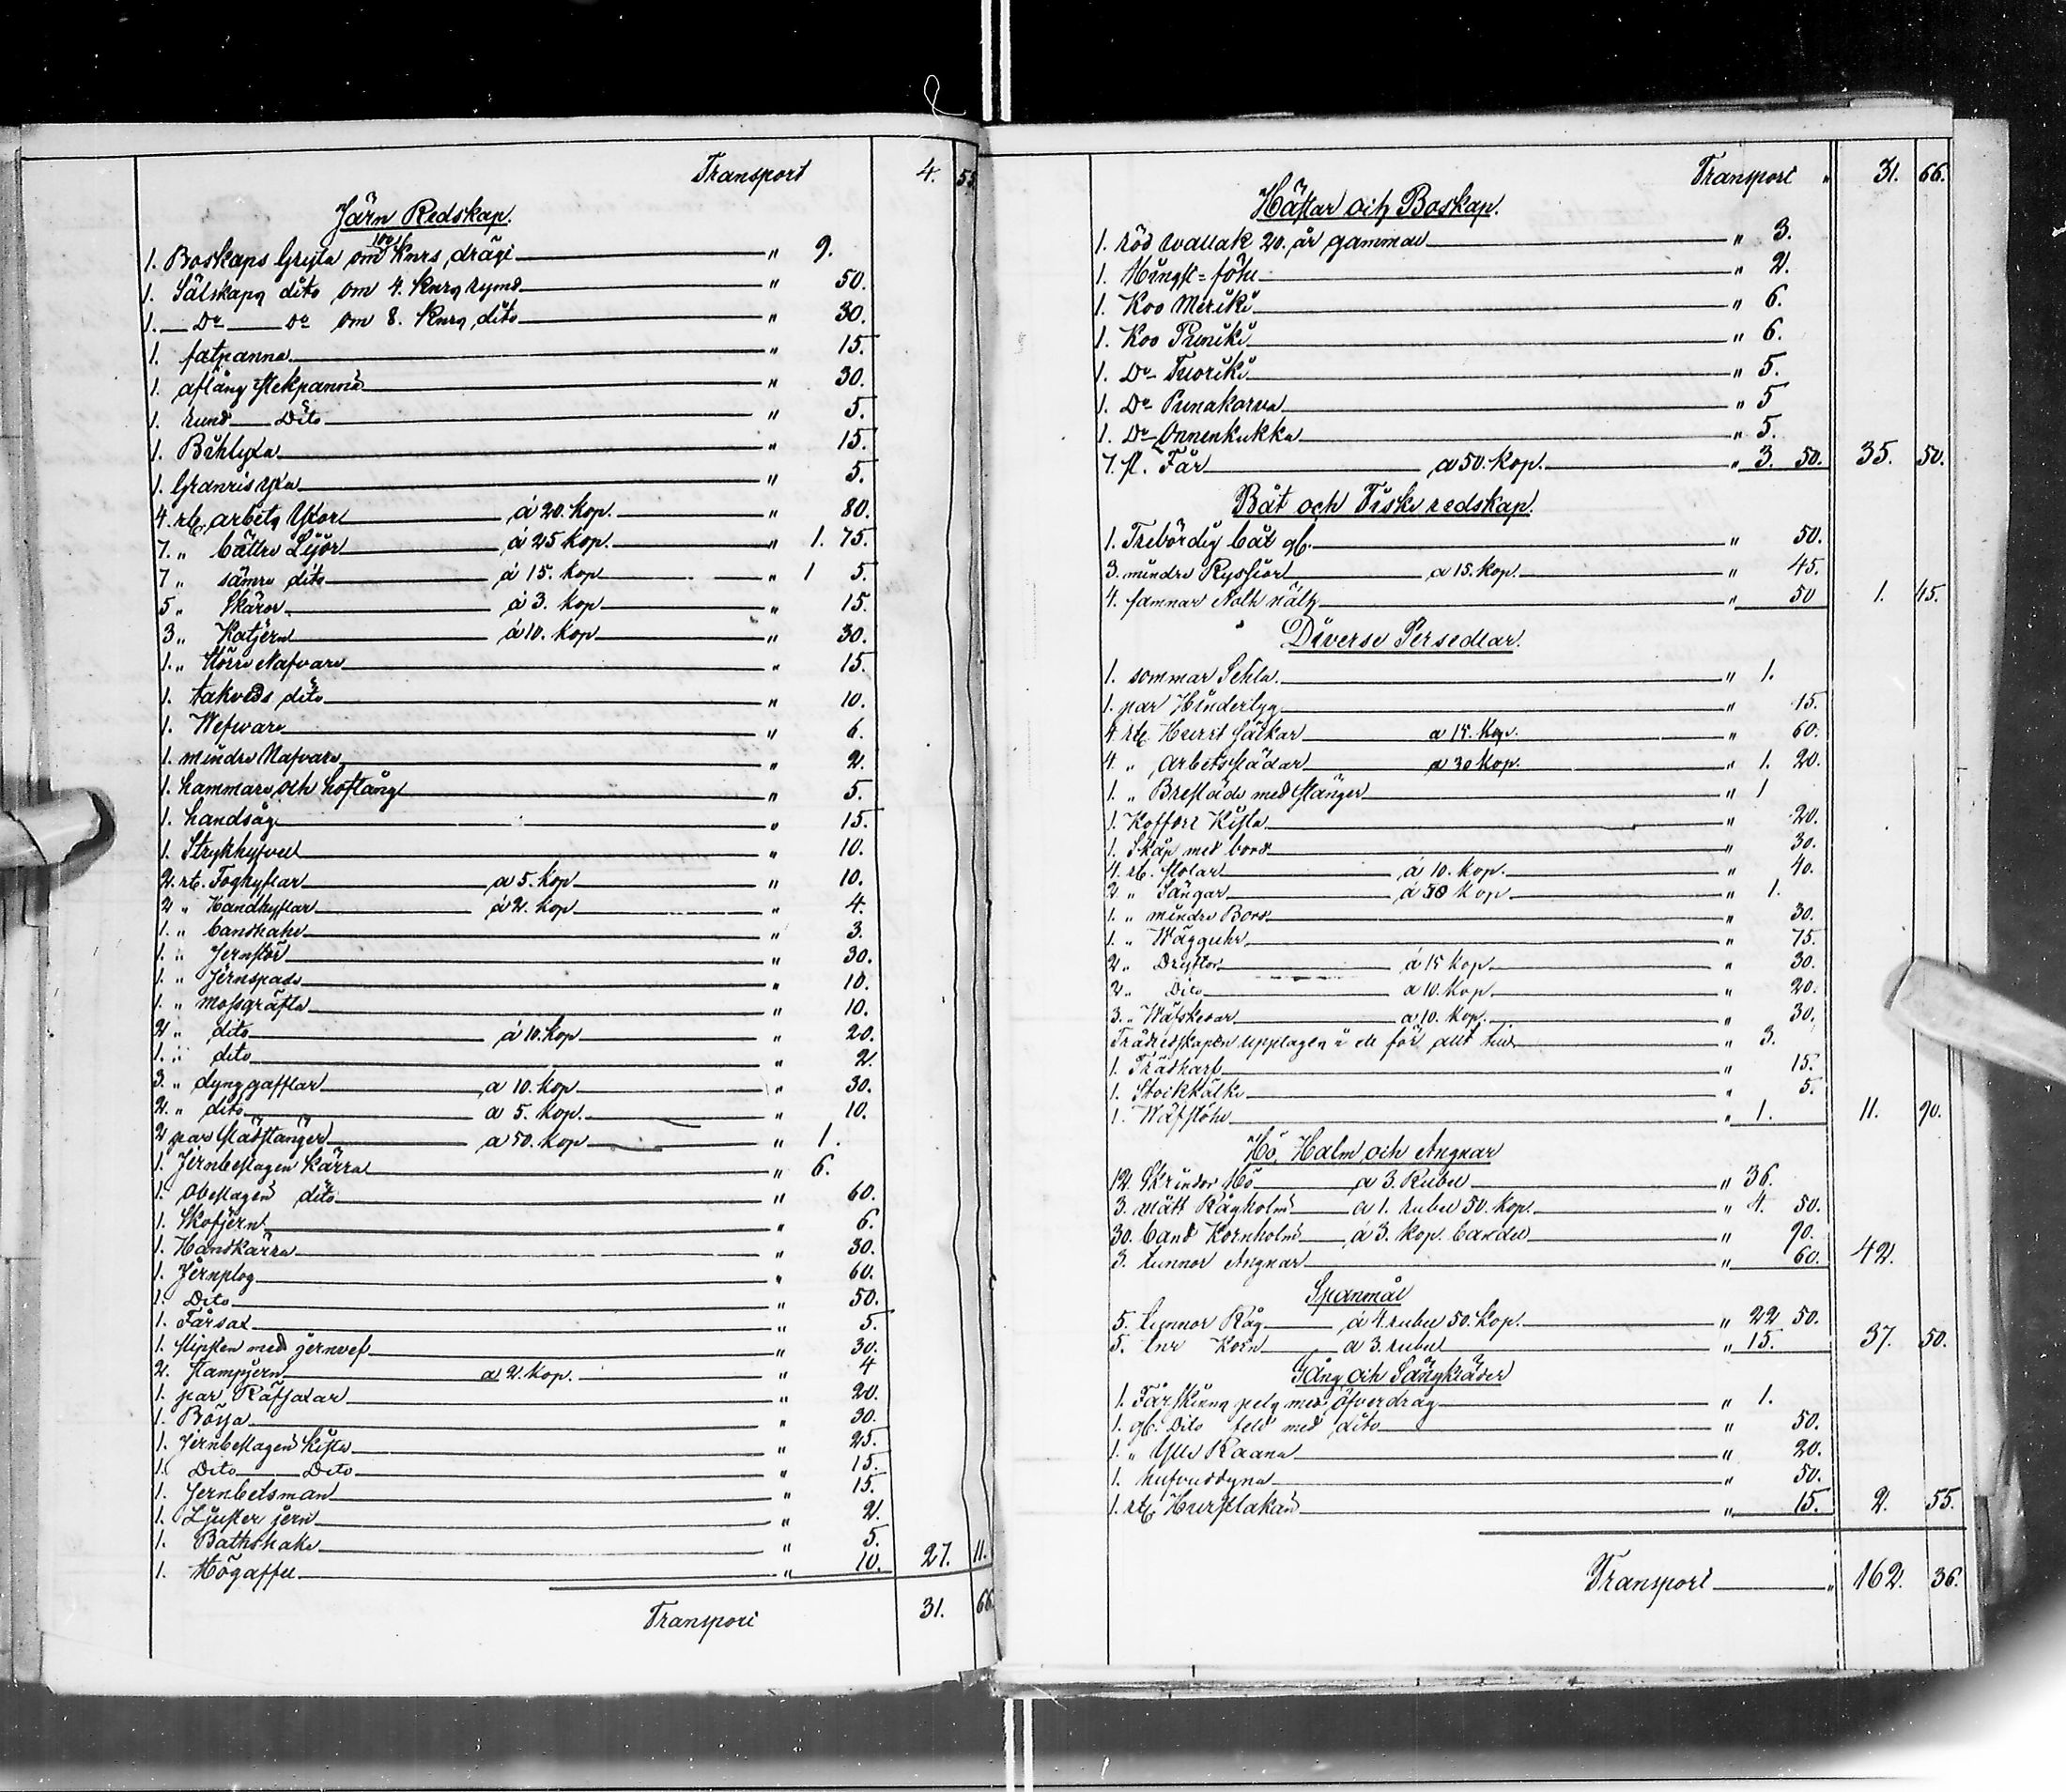 Transport 4. 55.
Järn Redskap.
1. Boskaps Gryta om 100 Knrs, drägt " 9.
1. Sälskapg dito om 4. Knrg rymd " 50.
1. Do do om 8. Knrg dito " 30.
1. fatpanna " 15.
1. aflång stekpanna " 30.
1. rund Dito " 5.
1. Bihlyxa " 15.
1. Granris yxa " 5.
4. st. arbetg Yxor á 20. Kop. " 80.
7. " bättre Lijor á 25 Kop. " 1. 75.
7 " sämre dito á 15. Kop " 1 5.
5 " Skäror á 3. Kop " 15.
3 " Katjern á 10. Kop " 30.
1. " större Nafvare " 15.
1. takveds dito " 10.
1. Wefware " 6.
1. mindre Nafvare " 2.
1. hammare och hoftång " 5.
1. handsåg " 15.
1. Strykhyfvel " 10.
2. st. Foghyflar a 5. Kop " 10.
2 " Handhyflar á 2. Kop " 4.
1. " bandhake " 3.
1. " Jernstör " 30.
1. " Jernspade " 10.
1. " mossgräfta " 10.
2 " dito á 10. Kop " 20.
1. " dito " 2.
3. " dynggafflar a 10. Kop " 30.
2. " dito a 5. Kop. " 10.
2 par Städstänger a 50. Kop " 1.
1. Jernbeslagen Kärra " 6.
1. Obeslagen dito " 60.
1. Skofjern " 6.
1. Handkärra " 30.
1. Jernplog " 60.
1. Dito " 50.
1. Fårsax " 5.
1. slipsten med jernvef " 30.
2. stampjern a 2. Kop. " 4
1. par Räfsaxar " 20.
1. Bössa " 30.
1. Jernbeslagen Kista " 25.
1. Dito Dito " 15.
1. Jernbetsman " 15.
1. Ljuster jern " 2.
1. Båthshake " 5.
1. Högaffel " 10. 27. 11.
Transport 31. 66.
Transport " 31. 66.
Hästar och Boskap.
1. röd wallak 20. år gammal " 3.
1. Hingst=föhl " 2.
1. Koo Meriki " 6.
1. Koo Puniki " 6.
1. Do Tuoriki " 5.
1. Do Punakorva " 5
1. Do Onnenkukka " 5.
7. st. Får a 50. Kop. " 3. 50. 35. 50.
Båt och Fiske redskap.
1. Trebördig båt gl. " 50.
3. mindre Ryssjor a 15. Kop. " 45.
4. famnar Noth nätg " 50 1. 45.
Diverse Persedlar.
1. sommar Sehla " 1.
1. par Hinderlyg " 15.
4. st. Hurst säckar a 15. Kop. " 60.
4. " arbetsslädar a 30 Kop. " 1. 20.
1. " Bresläde med stänger " 1
1. Koffort Kista " 20.
1. Skåp med bord " 30.
4. st. stolar á 10. Kop. " 40.
2 " Sängar á 50 Kop " 1.
1. " mindre Bord " 30.
1. " Wägguhr " 75.
2 " Dryftor á 15 Kop " 30.
2 " Dito a 10. Kop " 20.
3. " Wäfskedar a 10. Kop. " 30.
Trädredskapen upptagen i ett för allt till " 3.
1. Trädharf " 15.
1. Stockkälke " 5.
1. Wäfstohl " 1. 11. 90.
Hö, Halm, och Angnar
12. Skrindor Hö a 3. Rubel " 36.
3. mått Råghalm a 1. rubel 50. Kop. " 4. 50.
30. band Kornhalm á 3. Kop. bandel " 90.
3. tunnor Angnar " 60. 42.
Spanmål
5. tunnor Råg á 4. rubel 50. Kop. " 22 50.
5. tnr Korn a 3. rubel " 15. 37. 50.
Gång och Sängkläder
1. Fårskinng pelg med öfverdrag " 1.
1. gl. Dito fäll med dito " 50.
1. " Ylle Raana " 20.
1. hufvuddyna " 50.
1. st. Hurstlakan " 15. 2. 55.
Transport " 162. 36.